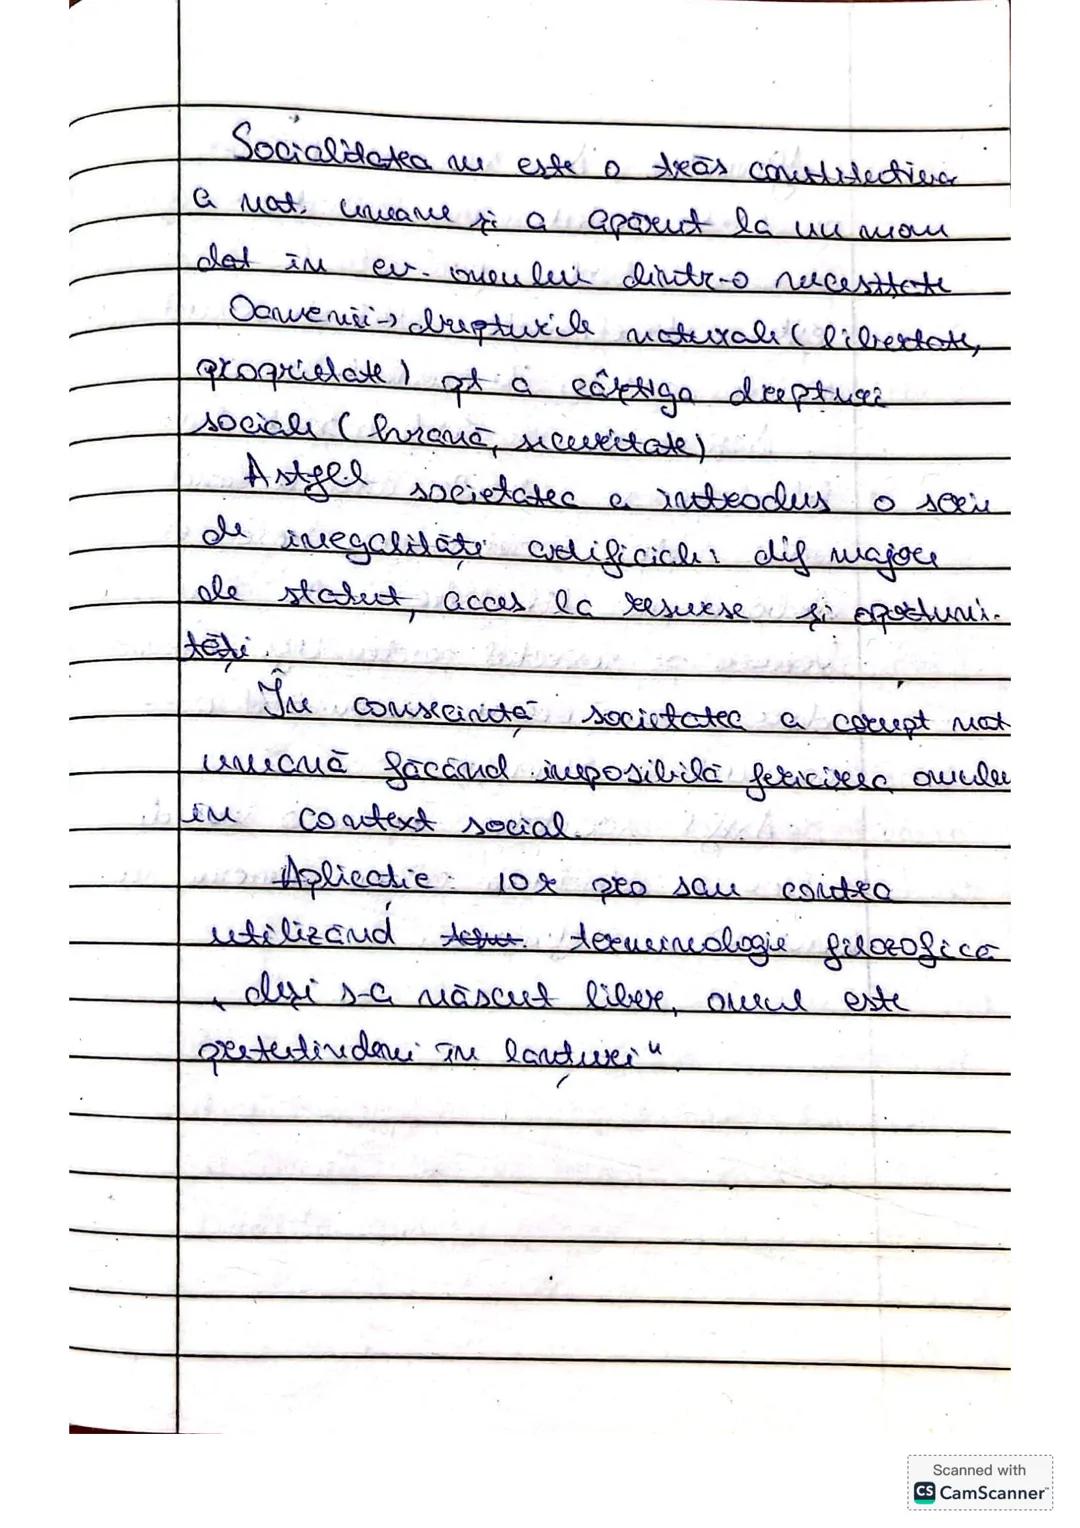 Socialitatea nu este o trăs constitutiva
a nat. umane și a apărut la un mom
dat în ev. omului dintr-o necesitate
Oamenii → drepturile naturale (libertate,
proprietate) pt a câștiga drepturi
sociale (hrană, securitate)
Astfel societatea a introdus o serie
de inegalități artificiale: dif majore
de statut, acces la resurse și oportuni-
tăți.
În consecință societatea a corupt nat
umană făcând imposibilă fericirea omului
în context social.
Aplicație: 10 r pro sau contra
utilizând terminologie filozofică
„deși s-a născut liber, omul este
pretutindeni în lanțuri"
Scanned with
CS CamScanner